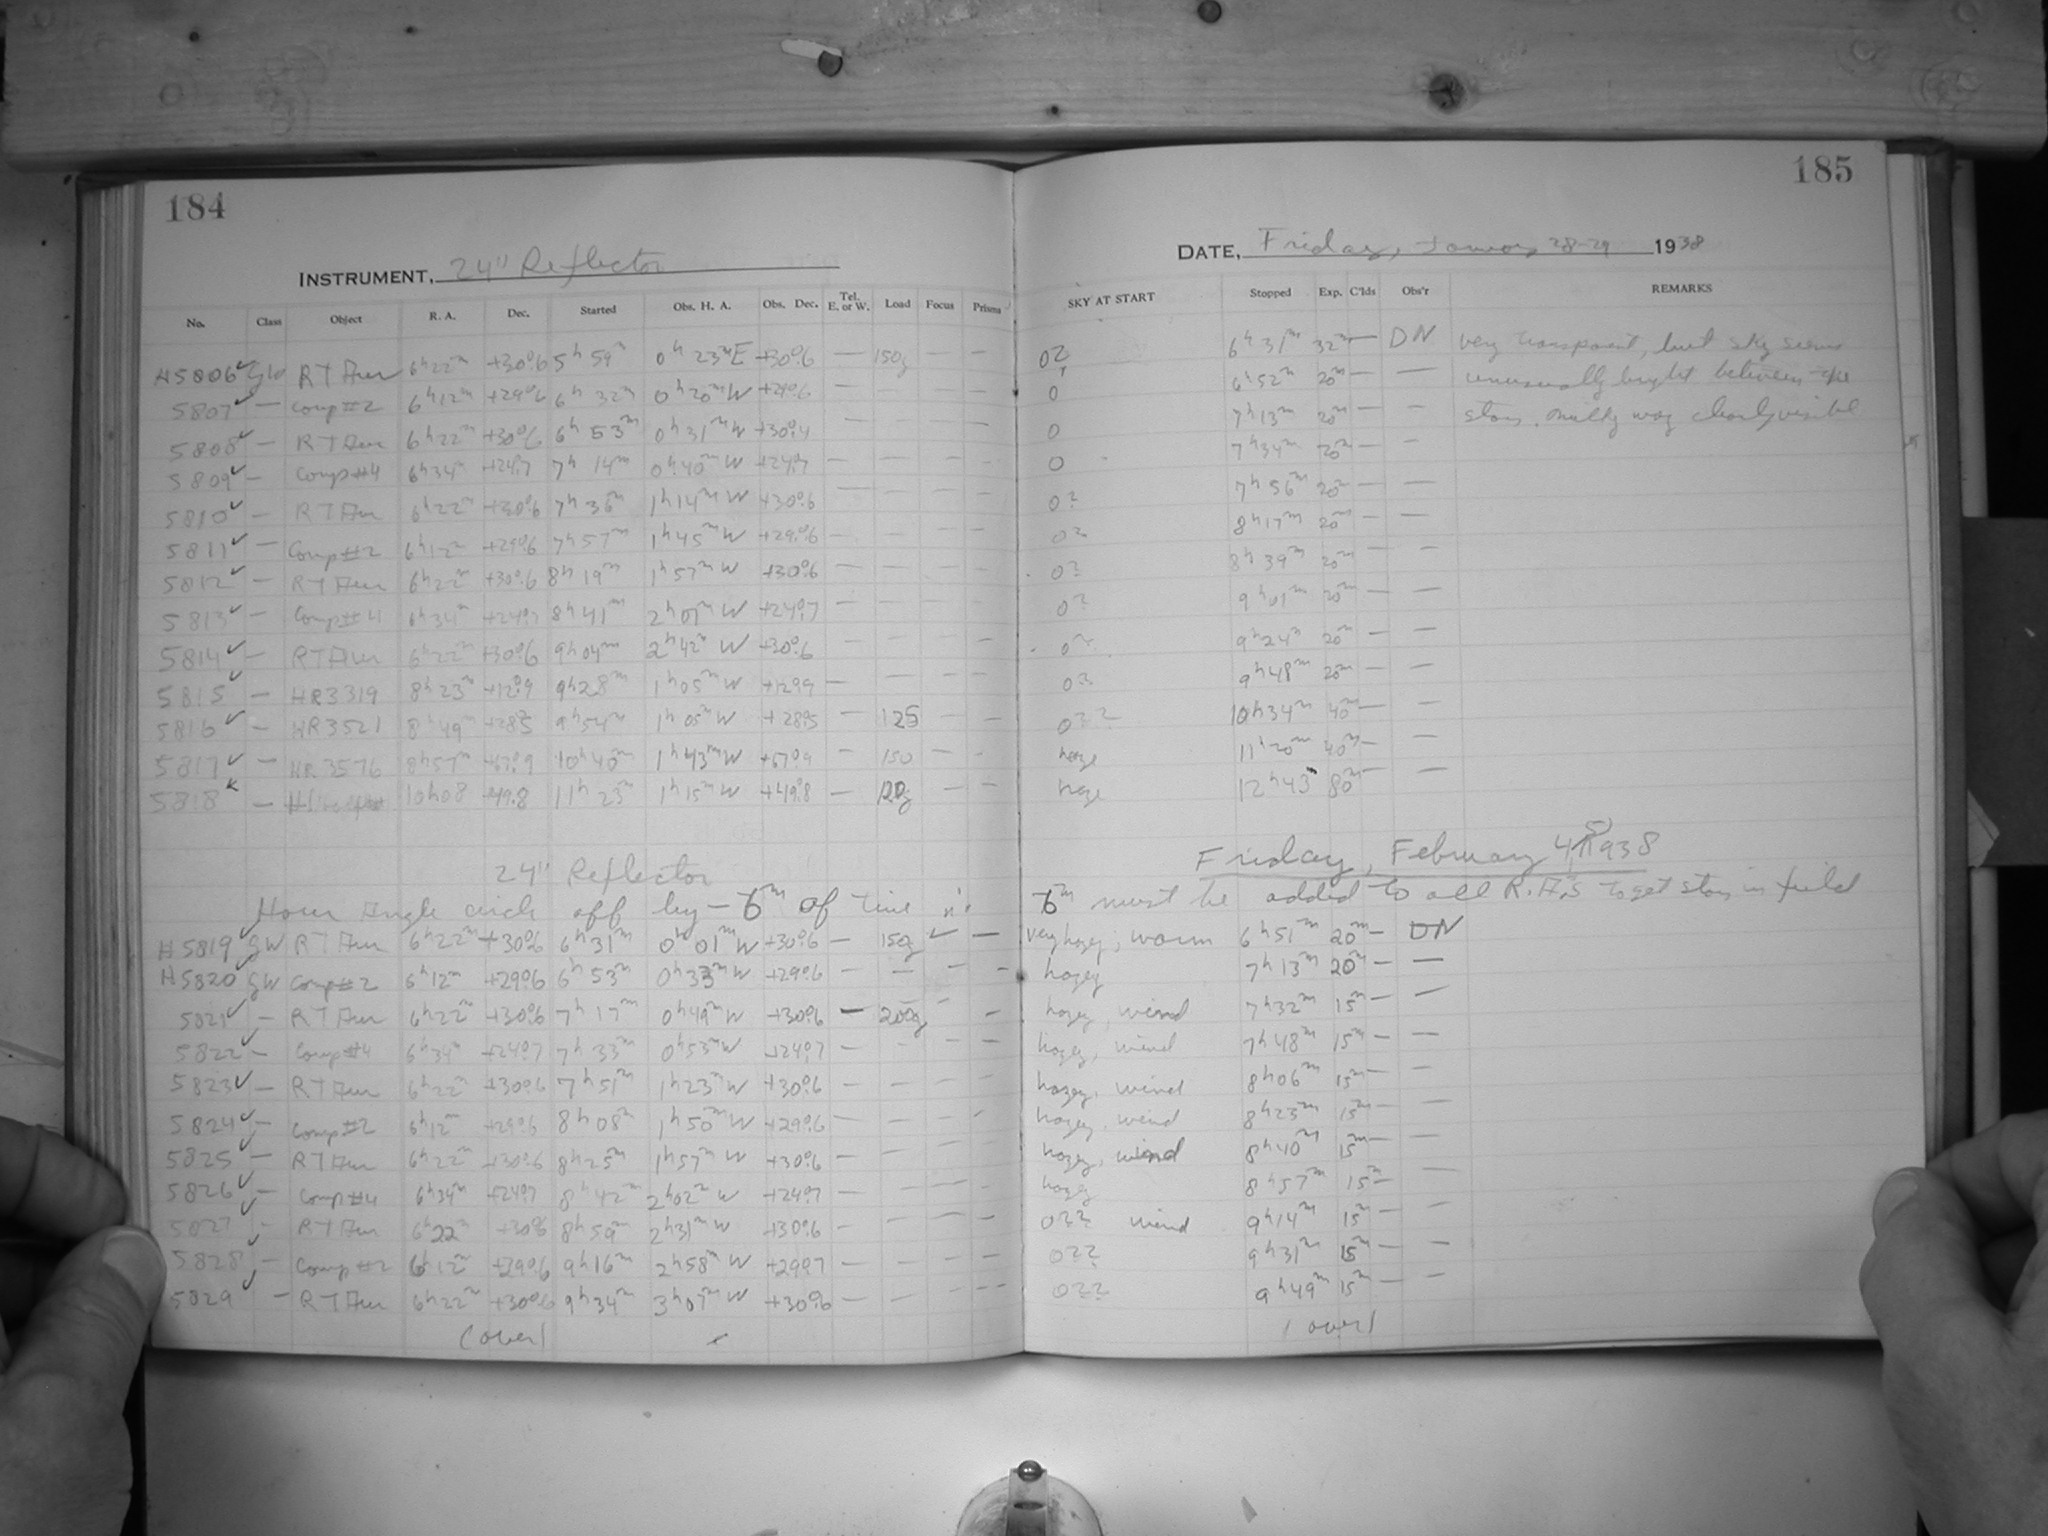 184
INSTRUMENT, 24" Reflector
No. Class Object R. A. Dec. Started Obs. H. A. Obs. Dec. Tel. E. or W. Load Focus Prisms
H5806 ✓ GW RT Aur 6h22m +30°.6 5h59m 0h23mE +30°.6 — 150g — —
5807 ✓ — Comp#2 6h12m +29°.6 6h32m 0h20mW +29°.6 — — — —
5808 ✓ — RT Aur 6h22m +30°.6 6h53m 0h31mW +30°.4 — — — —
5809 ✓ — Comp#4 6h34m +24°.7 7h14m 0h40mW +24°.7 — — — —
5810 ✓ — RT Aur 6h22m +30°.6 7h36m 1h14mW +30°.6 — — — —
5811 ✓ — Comp#2 6h12m +29°.6 7h57m 1h45mW +29°.6 — — —
5812 ✓ — RT Aur 6h22m +30°.6 8h19m 1h57mW +30°.6 — — — —
5813 ✓ — Comp#4 6h34m +24°.7 8h41m 2h07mW +24°.7 — — — —
5814 ✓ — RT Aur 6h22m +30°.6 9h04m 2h42mW +30°.6 — — — —
5815 ✓ — HR3319 8h23m +12°.9 9h28m 1h05mW +12°.9 — — — —
5816 ✓ — HR3521 8h49m +28°.5 9h54m 1h05mW +28°.5 — 125 — —
5817 ✓ — HR3576 8h57m +67°.9 10h40m 1h43mW +67°.9 — 150 — —
5818 — 10h08 +49.8 11h23m 1h15mW +49.8 — —
24" Reflector
Hour Angle circle off by −6m of time
H5819 ✓ GW RT Aur 6h22m +30°.6 6h31m 0h01mW +30°.6 — 150g ✓ —
H5820 ✓ GW Comp#2 6h12m +29°.6 6h53m 0h33mW +29°.6 — — — —
5821 ✓ — RT Aur 6h22m +30°.6 7h17m 0h49mW +30°.6 — 200g — —
5822 ✓ — Comp#4 6h34m +24°.7 7h33m 0h53mW +24°.7 — — — —
5823 ✓ — RT Aur 6h22m +30°.6 7h51m 1h23mW +30°.6 — — — —
5824 ✓ — Comp#2 6h12m +29°.6 8h08m 1h50mW +29°.6 — — — —
5825 ✓ — RT Aur 6h22m +30°.6 8h25m 1h57mW +30°.6 — — — —
5826 ✓ — Comp#4 6h34m +24°.7 8h42m 2h02mW +24°.7 — — — —
5827 ✓ — RT Aur 6h22m +30°.6 8h59m 2h31mW +30°.6 — — — —
5828 ✓ — Comp#2 6h12m +29°.6 9h16m 2h58mW +29°.7 — — — —
5829 ✓ — RT Aur 6h22m +30°.6 9h34m 3h07mW +30°.6 — — — —
(over)
185
DATE, Friday, January 28-29 1938
SKY AT START Stopped Exp. C'lds Obs'r REMARKS
0? 6h31m 32m — DN very transparent, but sky seems
0 6h52m 20m — — unusually bright between the
0 7h13m 20m — — stars. milky way clearly visible
0 7h34m 20m — —
0? 7h56m 20m — —
0? 8h17m 20m — —
0? 8h39m 20m — —
0? 9h01m 20m — —
0? 9h24m 20m — —
0? 9h48m 20m — —
0?? 10h34m 40m — —
haze 11h20m 40m — —
haze 12h43m 80m — —
Friday, February 4, 1938
6m must be added to all R.A.'s to get stars in field
very hazey; warm 6h51m 20m — DN
hazey 7h13m 20m — —
hazey, wind 7h32m 15m — —
hazey, wind 7h48m 15m — —
hazey, wind 8h06m 15m — —
hazey, wind 8h23m 15m — —
hazey, wind 8h40m 15m — —
hazey 8h57m 15m — —
0?? wind 9h14m 15m — —
0?? 9h31m 15m — —
0?? 9h49m 15m — —
(over)